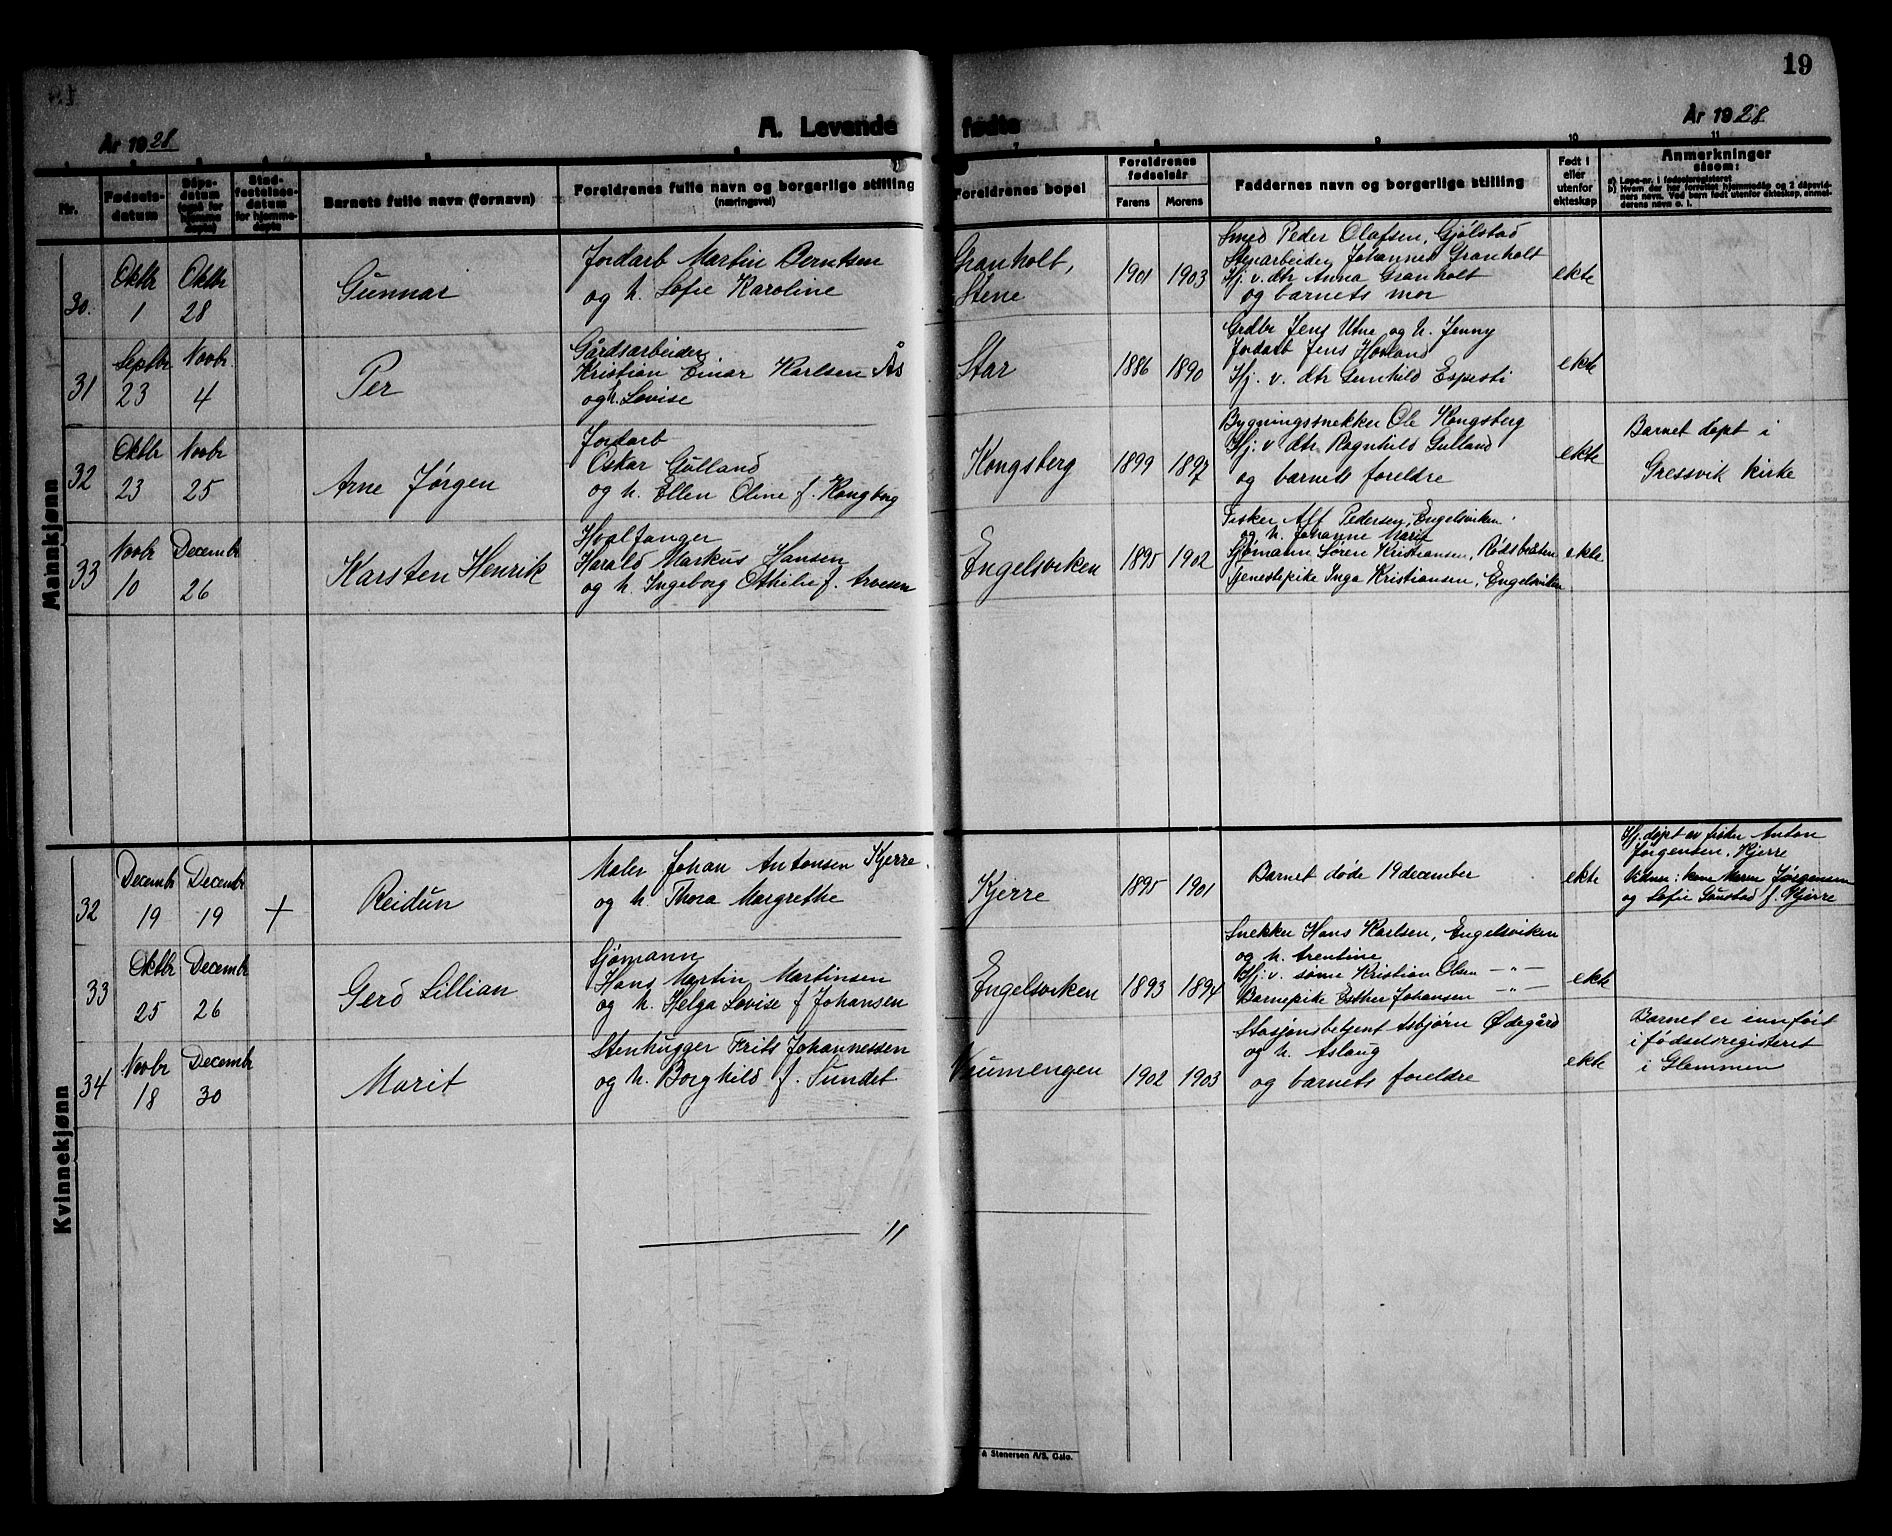 19
År 1928
A. Levende fødte
År 1928
Nr.
Fødselsdatum
Dåpsdatum
Stadfestelsesdatum for hjemmedøpte
Barnets fulle navn (fornavn)
Foreldrenes fulle navn og borgerlige stilling
(næringsvei)
7
Foreldrenes bopel
Foreldrenes fødselsår
Farens Morens
9
Faddernes navn og borgerlige stilling
10
Født i eller utenfor ekteskap
11
Anmerkninger
såsom:
a) Løpe-nr. i fødselsregisteret
b) Hvem der har forrettet hjemmedåp og 2 dåpsvidners navn. Ved barn født utenfor ekteskap, anmelderens navn o. l.
Mannkjønn
30.
Oktbr
1
Oktbr
28
Gunnar
Jordarb Martin Berntsen
og h. Sofie Karoline
Granholt,
Stene
1901 1903
Smed Peder Olafsen, Gjølstad
Stenarbeider Johannes Granholt
Hj. v. dtr Anna Granholt
og barnets mor
ekte
31
Septbr
23
Novbr
4
Per
Gårdsarbeider
Kristian Einar Karlsen Ås
og h. Lovise
Star
1886 1890
Grdbr Jens Utne og h. Jenny
Jordarb Jens Hovland
Hj. v. dtr Gunhild Espesti
ekte
32
Oktbr
23
Novbr
25
Arne Jørgen
Jordarb
Oskar Gulland
og h. Ellen Oline f. Kongberg
Kongsberg
1899 1897
Bygningssnekker Ole Kongsberg
Hj. v dtr Ragnhild Gulland
og barnets foreldre
ekte
Barnet døpt i
Gressvik kirke
33
Novbr
10
Decembr
26
Karsten Henrik
Hvalfanger
Harald Markus Hansen
og h. Ingeborg Othilie f. Arvesen
Engelsviken
1895 1902
Fisker Alf Pedersen, Engelsviken
og h. Johanne Marit
Sjømann Søren Kristiansen, Rødsbråten
Tjenestepike Inga Kristiansen, Engelsviken
ekte
Kvinnekjønn
32
Decembr
19
Decembr
19
+
Reidun
Maler Johan Antonsen Kjerre
og h. Thora Margrethe
Kjerre
1895 1901
Barnet døde 19 december
ekte
Hj. døpt av fisker Anton
Jørgensen, Kjerre
Vidner: kone Maren Jørgensen
og Sofie Gunstad f. Kjerre
33
Oktbr
25
Decembr
26
Gerd Lillian
Sjømann
Hans Martin Martinsen
og h. Helga Lovise f Johansen
Engelsviken
1893 1894
Snekker Hans Karlsen, Engelsviken
og h. Arentine
Hj. v. sønn Kristian Olsen — " —
Barnepike Esther Johansen — " —
ekte
34
Novbr
18
Decembr
30
Marit
Stenhugger Frits Johannessen
og h. Borghild f. Sundet
Veumengen
1902 1903
Stasjonsbetjent Asbjørn Ødegård
og h. Aslaug
og barnets foreldre
ekte
Barnet er innført
i fødselsregisteret
i Glemmen
11
& Stenersen A/S, Oslo.